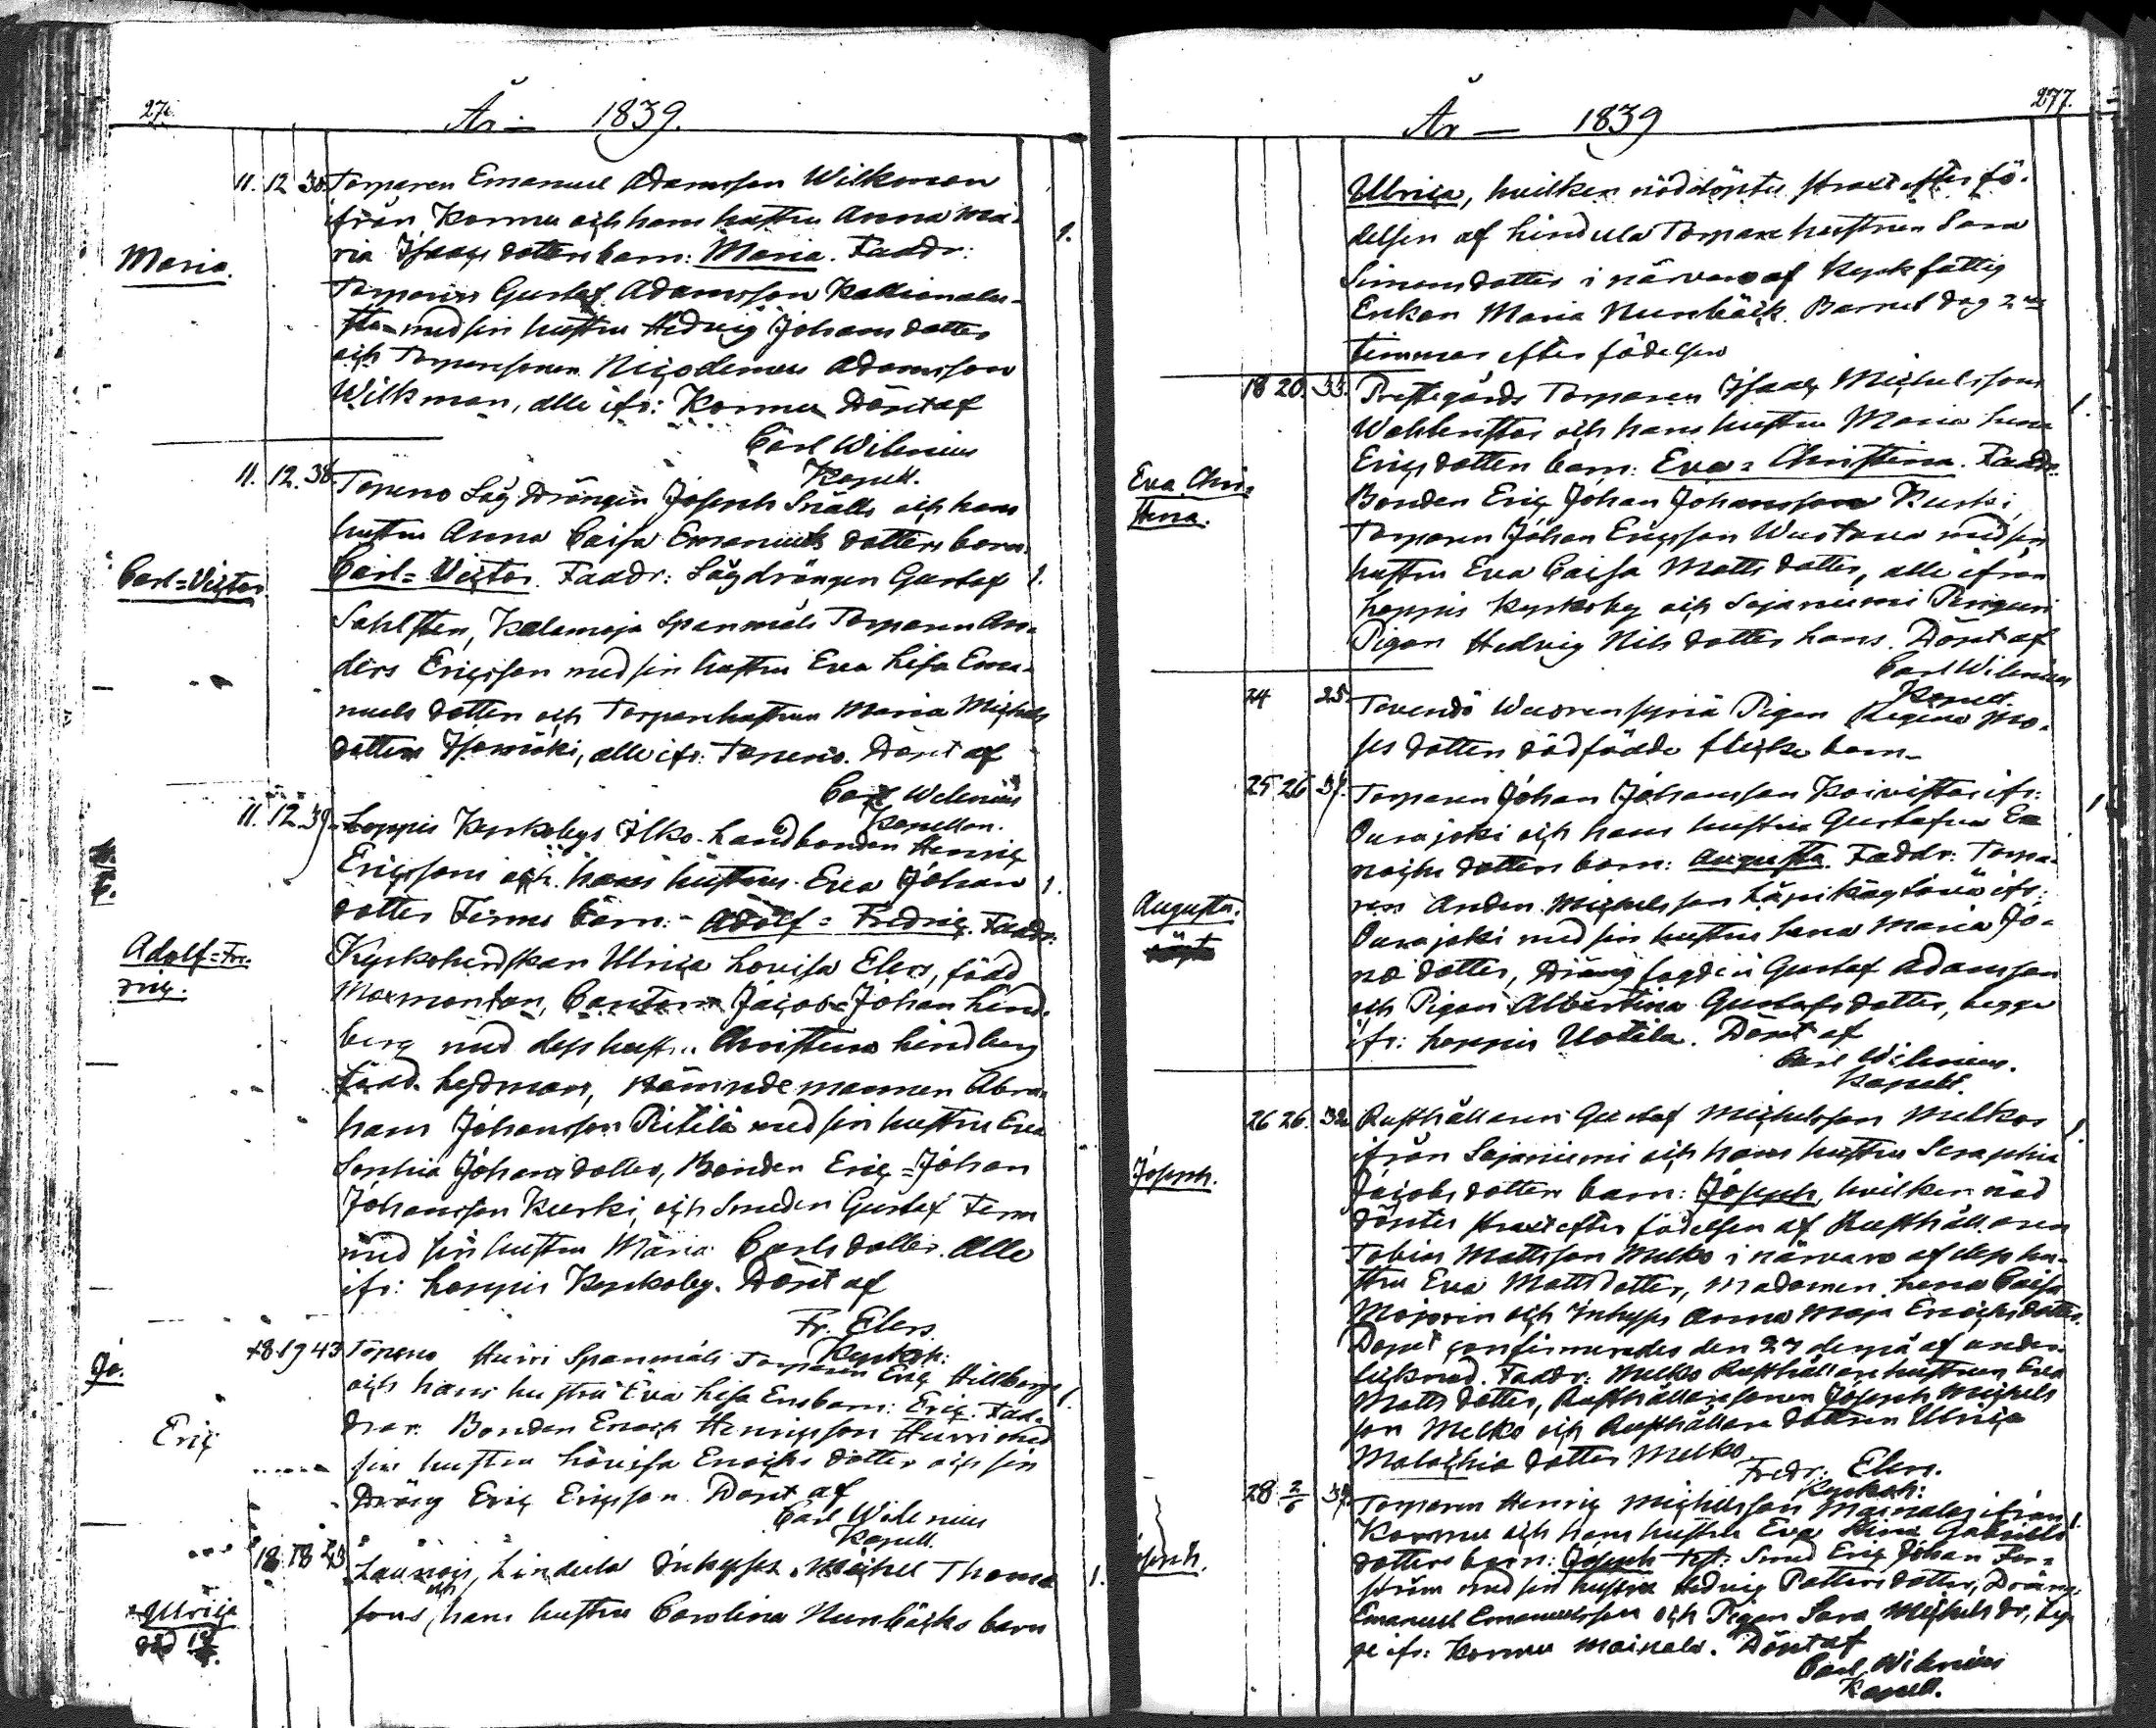 276.
År — 1839.
Maria.
11. 12 30. Torparen Emanuel Adamsson Wilkman
ifrån Kormu och hans hustru Anna Ma-
ria Isaacs dotters barn: Maria. Faddr: 1.
Torparen Gustaf Adamsson
med sin hustru Hedvig Johans dotter
och Torparesonen Nicodemus Adamsson
Wilkman, alle ifr: Kormu Döpt af
Carl Wilenius
Kapell.
Carl=Victor
11. 12. 38. Topeno Sågdrängen Joseph Snälls och hans
hustru Anna Caisa Emanuels dotters barn:
Carl=Victor. Faddr: Sågdrängen Gustaf 1.
Sahlsten, Kalamaja Spanmåls Torparen An-
ders Ericsson med sin hustru Eva Lisa Ema-
nuels dotter och Torparehustrun Maria Michels
dotter Isomäki, alle ifr: Topeno. Döpt af
Carl Wilenius
Kapellan.
Adolf=Fre-
dric.
11. 12. 39. Loppis Kyrkobys Ilko Landbonden Henric
Ericssons och hans hustrus Eva Johans 1.
dotter Ferms barn: Adolf=Fredric. Faddr:
Kyrkoherdskan Ulrica Lovisa Elers, född
Cantorn Jacob Johan Lind-
berg med dess hustru Christina Lindberg
född Lydman, Nämndemannen Abra-
ham Johansson Pietilä med sin hustru Eva
Sophia Johans dotter, Bonden Eric=Johan
Johansson Kurki, och Smeden Gustaf Ferm
med sin hustru Maria Carls dotter. Alle
ifr: Loppis Kyrkoby. Döpt af
Fr. Elers
Kyrkoh:
Jo.
Eric
18. 19 43 Topeno Hurri Spanmåls Torparen Eric Hillbergs
och hans hustru Eva Lisa Ens barn: Eric. Fad- 1.
drar. Bonden Enoch Henricsson Hurri med
sin hustru Lovisa Enochs dotter och sin
Dräng Eric Ericsson. Döpt af
Carl Wilenius
Kapell.
Ulrica
död 18/
18. 18 23 Launois, Lindula Inhyses Michel Thomas 1.
sons och hans hustru Carolina Nunbäcks barn
277.
År — 1839
Ulrica, hvilken nöddöptes straxt efter fö-
delsen af Lindula Torpare hustrun Sara
Simonsdotter i närvaro af Kyrkfattig
Enkan Maria Nunbäck. Barnet dog 2ne
timmar efter födelsen
Eva Chri-
stina.
18 20. 33. Prestegårds Torparen Isaac Michelssons 1.
Wahlersten och hans hustru Maria Lena
Erics dotters barn: Eva=Christina. Faddr:
Bonden Eric Johan Johansson Kurki,
Torparen Johan Ericsson Wustana med sin
hustru Eva Caisa Matts dotter, alle ifrån
Loppis Kyrkoby och Sajaniemi
Pigan Hedvig Nils dotter Döpt af
Carl Wilenius
Kapell.
24 25. Tavendö Pigan Regina Mo-
ses dotters dödfödde flicke barn.
Augusta.
25 26 37. Torparen Johan Johansson Koivistos ifr: 1.
Ourajoki och hans hustru Gustafva E-
nochs dotters barn: Augusta. Faddr: Torpa-
ren Anders Michelsson ifr:
Ourajoki med sin hustru Lena Maria Jo-
næ dotter, Dräng Gustaf Adamsson
och Pigan Albertina Gustafs dotter, begge
ifr: Loppis Uotila. Döpt af
Carl Wilenius.
Kapell.
Joseph.
26 26. 32. Rusthållaren Gustaf Michelsson Melkos 1.
ifrån Sajaniemi och hans hustru Seraphia
Jacobs dotters barn: Joseph, hvilken nöd
döptes straxt efter födelsen af Rusthållaren
Tobias Mattsson Melko i närvaro af dess hu-
stru Eva Mattsdotter, Madamen Lena Caisa
Majorin och Inhyses Anna Maja Enochsdotter.
Dopet confirmerades den 27 derpå af under-
tecknad. Faddr: Melko Rusthållarehustrun Eva
Matts dotter, Rusthållaresonen Joseph Michels
son Melko och Rusthållare dottren Ulrica
Malachia dotter Melko
Fredr. Elers.
Kyrkoh:
Joseph.
28 2/6 37. Torparen Henric Michelsson Mainalas ifrån 1.
Kormu och hans hustru Eva Stina Gabriels
dotters barn: Joseph. Smed Eric Johan For-
ström med sin hustru Hedvig Petters dotter, Dräng
Emanuel Emanuelsson och Pigan Sara Michels dr, beg-
ge ifr: Kormu Mainala. Döpt af
Carl Wilenius
Kapell.